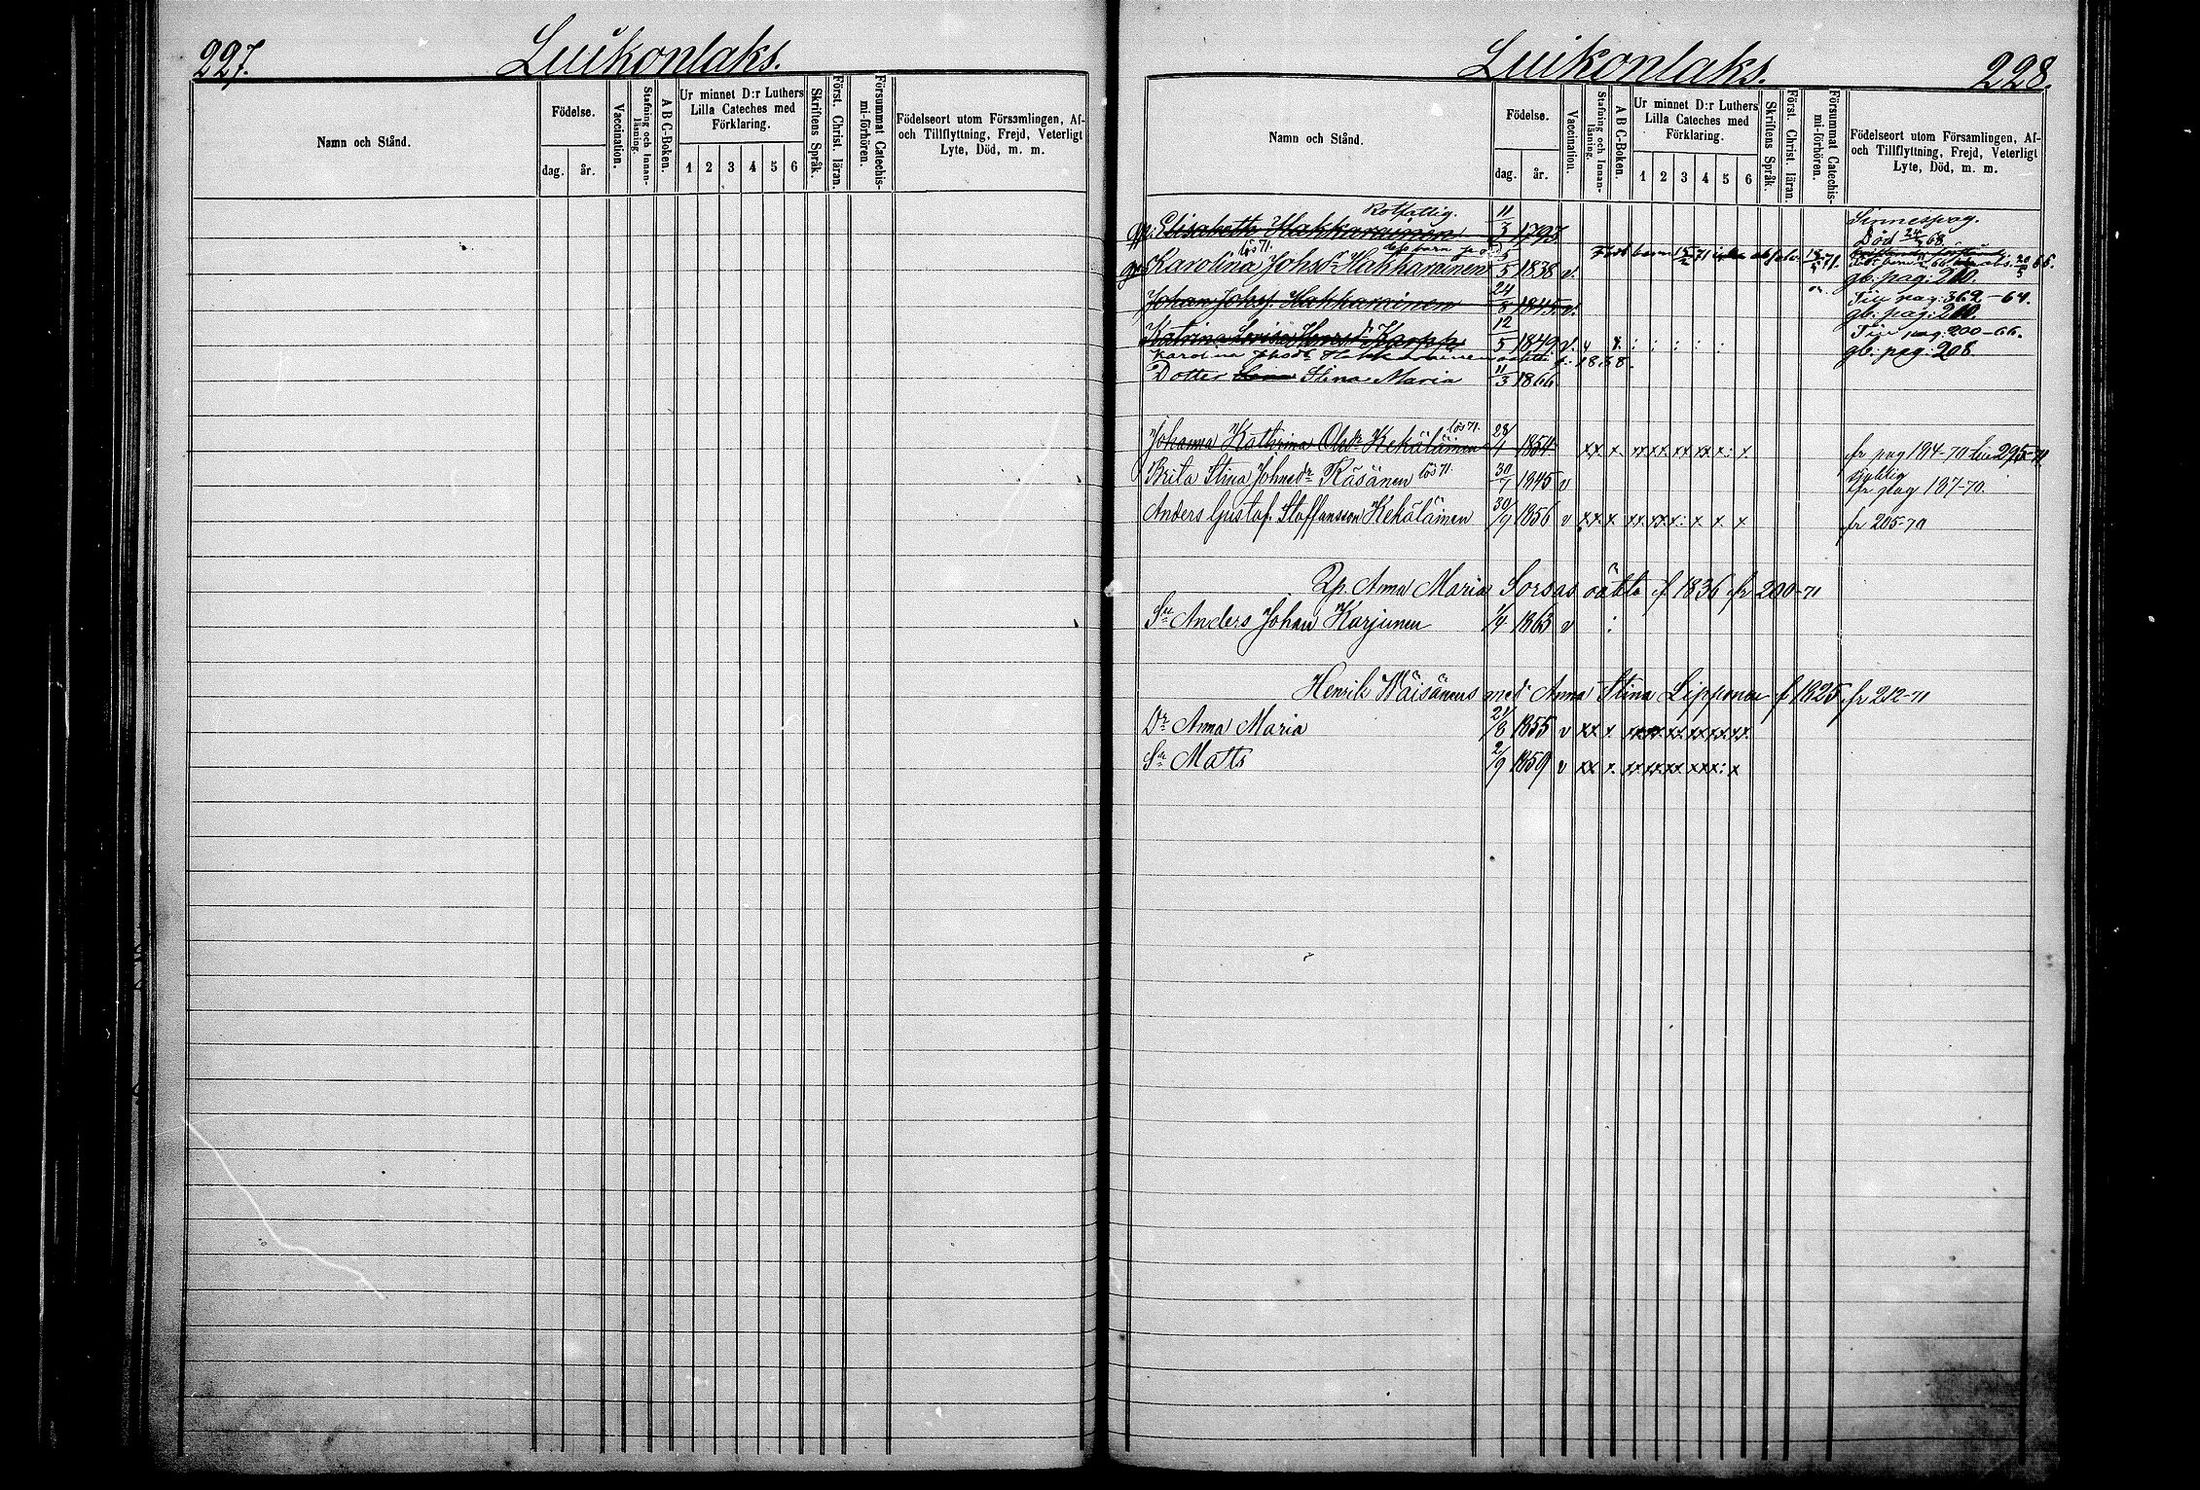 227.
Luikonlaks.
Namn och Stånd.
Födelse.
dag.
år.
Vaccination.
Stafning och Innan-
läsning.
A B C-Boken.
Ur minnet D:r Luthers
Lilla Cateches med
Förklaring.
1 2 3 4 5 6
Skriftens Språk.
Först. Christ. läran.
Försummat Catechis-
mi-förhören.
Födelseort utom Församlingen, Af-
och Tillflyttning, Frejd, Veterligt
Lyte, Död, m. m.
Luikonlaks.
228.
Namn och Stånd.
Födelse.
dag.
år.
Vaccination.
Stafning och Innan-
läsning.
A B C-Boken.
Ur minnet D:r Luthers
Lilla Cateches med
Förklaring.
1 2 3 4 5 6
Skriftens Språk.
Först. Christ. läran.
Försummat Catechis-
mi-förhören.
Födelseort utom Församlingen, Af-
och Tillflyttning, Frejd, Veterligt
Lyte, Död, m. m.
Rotfattig.
Elisabeth Hakkarainen 11/3 1793 Sinnessvag.
Död 24/ 68.
lös 71.
Karolina Johsdr Hakkarainen 5/5 1838 v.
gb. pag: 210.
Johan Johsf. Hakkarainen 24/8 1845 v. Till pag: 362-64.
gb. pag: 210.
Katrina Lovisa Karppi 12/5 1849 v. Till pag: 200-66.
gb. pag: 208.
Karolina Johsdr Hakkarainen oäkta f. 1838.
Dotter Stina Maria 11/3 1866
Johanna Kathrina Olofsdr Kekäläinen lös 71. 28/4 1854 xx x xx xx xx xx x: x fr pag 194-70 till 295-71
Brita Stina Johnsdr Räsänen lös 71. 30/7 1845 v
fr pag 187-70.
Anders Gustaf Staffansson Kekäläinen 30/9 1856 v xx x xx xx x: x x x fr 205-70
Anna Maria Sorsas oäkta f 1836 fr 200-71
Sn Anders Johan Karjunen 1/4 1863 v :
Henrik Wäisänens med Anna Stina Lipponen f 1825 fr 212-71
Dr Anna Maria 21/8 1855 v xx x xx xx xx xx xx xx
Sn Matts 2/9 1859 v xx x xx xx xx xx x: x